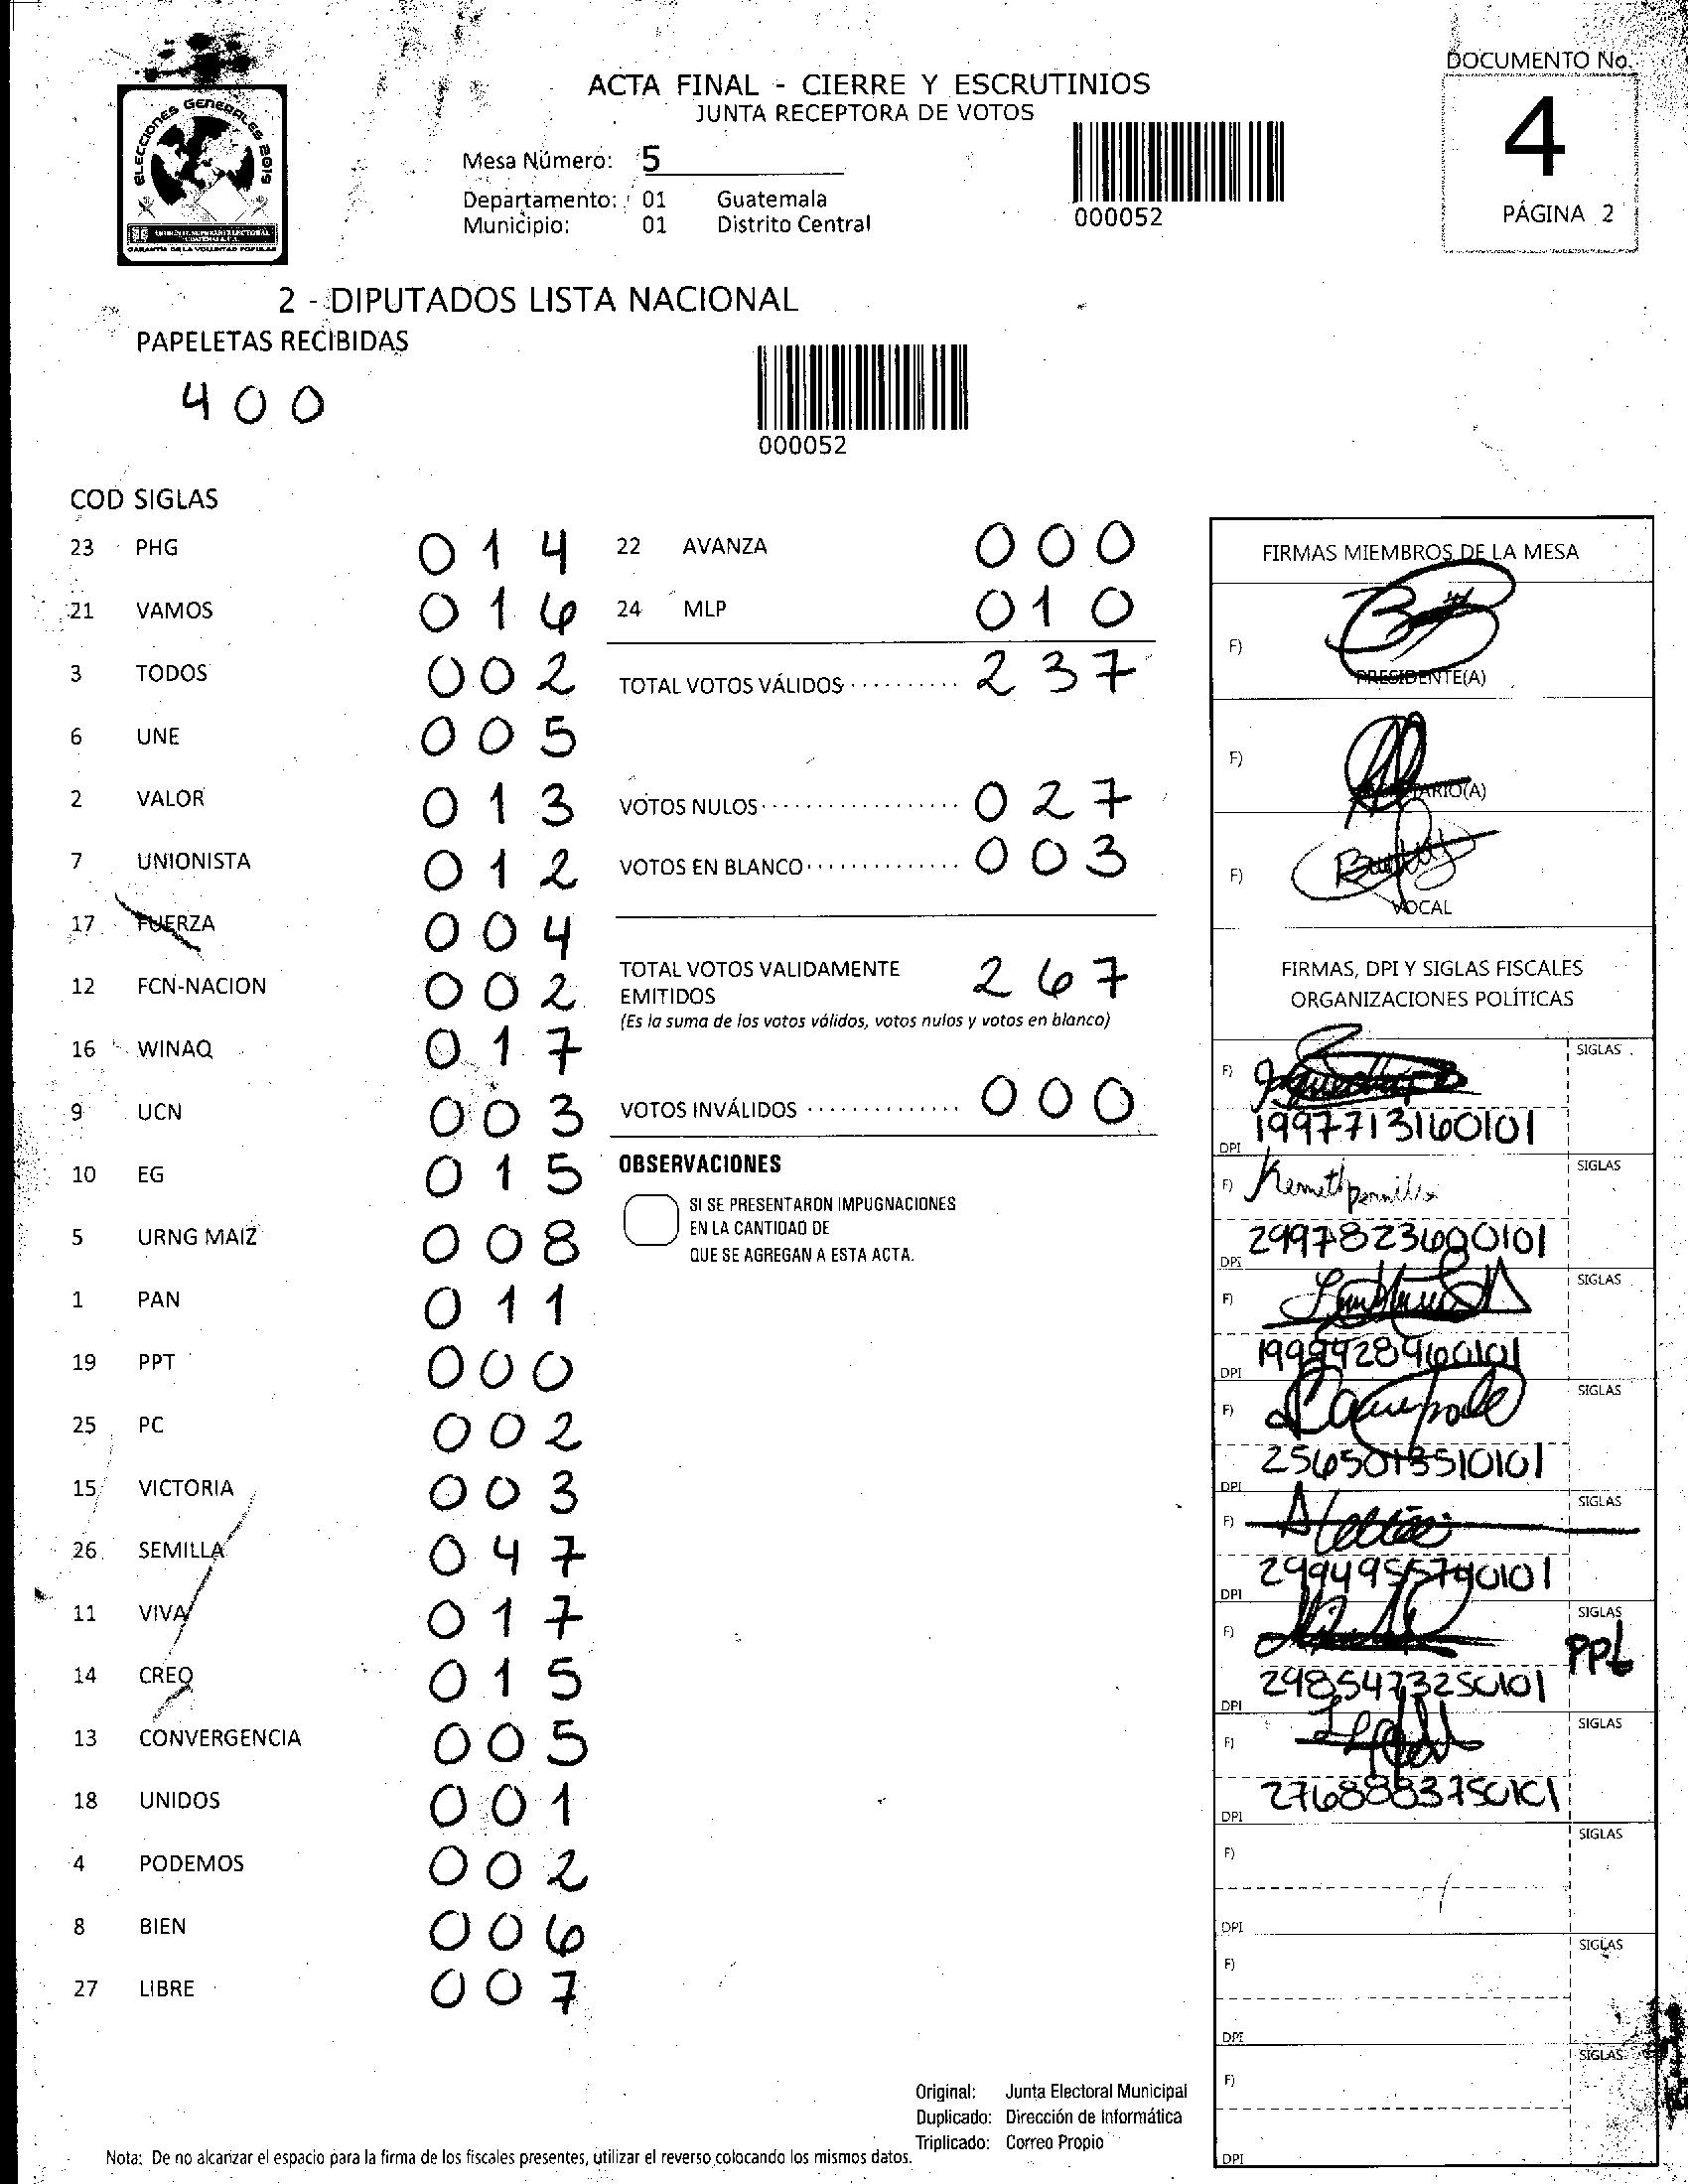 DOCUMENTO No.
4
PÁGINA 2
ELECCIONES GENERALES 2019
GARANTÍA DE LA VOLUNTAD POPULAR
ACTA FINAL - CIERRE Y ESCRUTINIOS
JUNTA RECEPTORA DE VOTOS
Mesa Número: 5
Departamento: 01 Guatemala
Municipio: 01 Distrito Central
000052
2 - DIPUTADOS LISTA NACIONAL
PAPELETAS RECIBIDAS
400
000052
COD SIGLAS
23 PHG 014
21 VAMOS 016
3 TODOS 002
6 UNE 005
2 VALOR 013
7 UNIONISTA 012
17 FUERZA 004
12 FCN-NACION 002
16 WINAQ 017
9 UCN 003
10 EG 015
5 URNG MAIZ 008
1 PAN 011
19 PPT 000
25 PC 002
15 VICTORIA 003
26 SEMILLA 047
11 VIVA 017
14 CREO 015
13 CONVERGENCIA 005
18 UNIDOS 001
4 PODEMOS 002
8 BIEN 006
27 LIBRE 007
22 AVANZA 000
24 MLP 010
TOTAL VOTOS VÁLIDOS .......... 237
VOTOS NULOS .................. 027
VOTOS EN BLANCO .............. 003
TOTAL VOTOS VALIDAMENTE
EMITIDOS 267
(Es la suma de los votos válidos, votos nulos y votos en blanco)
VOTOS INVÁLIDOS .............. 000
OBSERVACIONES
SI SE PRESENTARON IMPUGNACIONES
EN LA CANTIDAD DE
QUE SE AGREGAN A ESTA ACTA.
FIRMAS MIEMBROS DE LA MESA
F)
PRESIDENTE(A)
F)
SECRETARIO(A)
F)
VOCAL
FIRMAS, DPI Y SIGLAS FISCALES
ORGANIZACIONES POLÍTICAS
F) SIGLAS
DPI 1997713160101
F) SIGLAS
DPI 2997823600101
F) SIGLAS
DPI 1999928960101
F) SIGLAS
DPI 2565013510101
F) SIGLAS
DPI 2994955790101
F) SIGLAS
PPT
DPI 2985473250101
F) SIGLAS
DPI 2768883750101
F) SIGLAS
DPI
F) SIGLAS
DPI
F) SIGLAS
DPI
Original: Junta Electoral Municipal
Duplicado: Dirección de Informática
Triplicado: Correo Propio
Nota: De no alcanzar el espacio para la firma de los fiscales presentes, utilizar el reverso colocando los mismos datos.